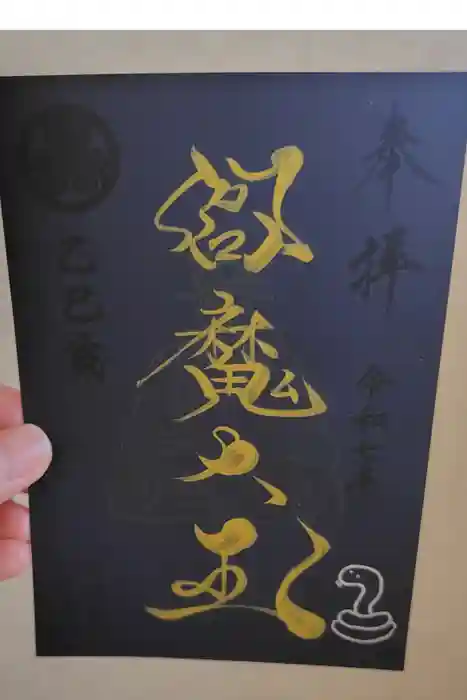 奉拝
令和七年
閻魔大王
乙巳歳